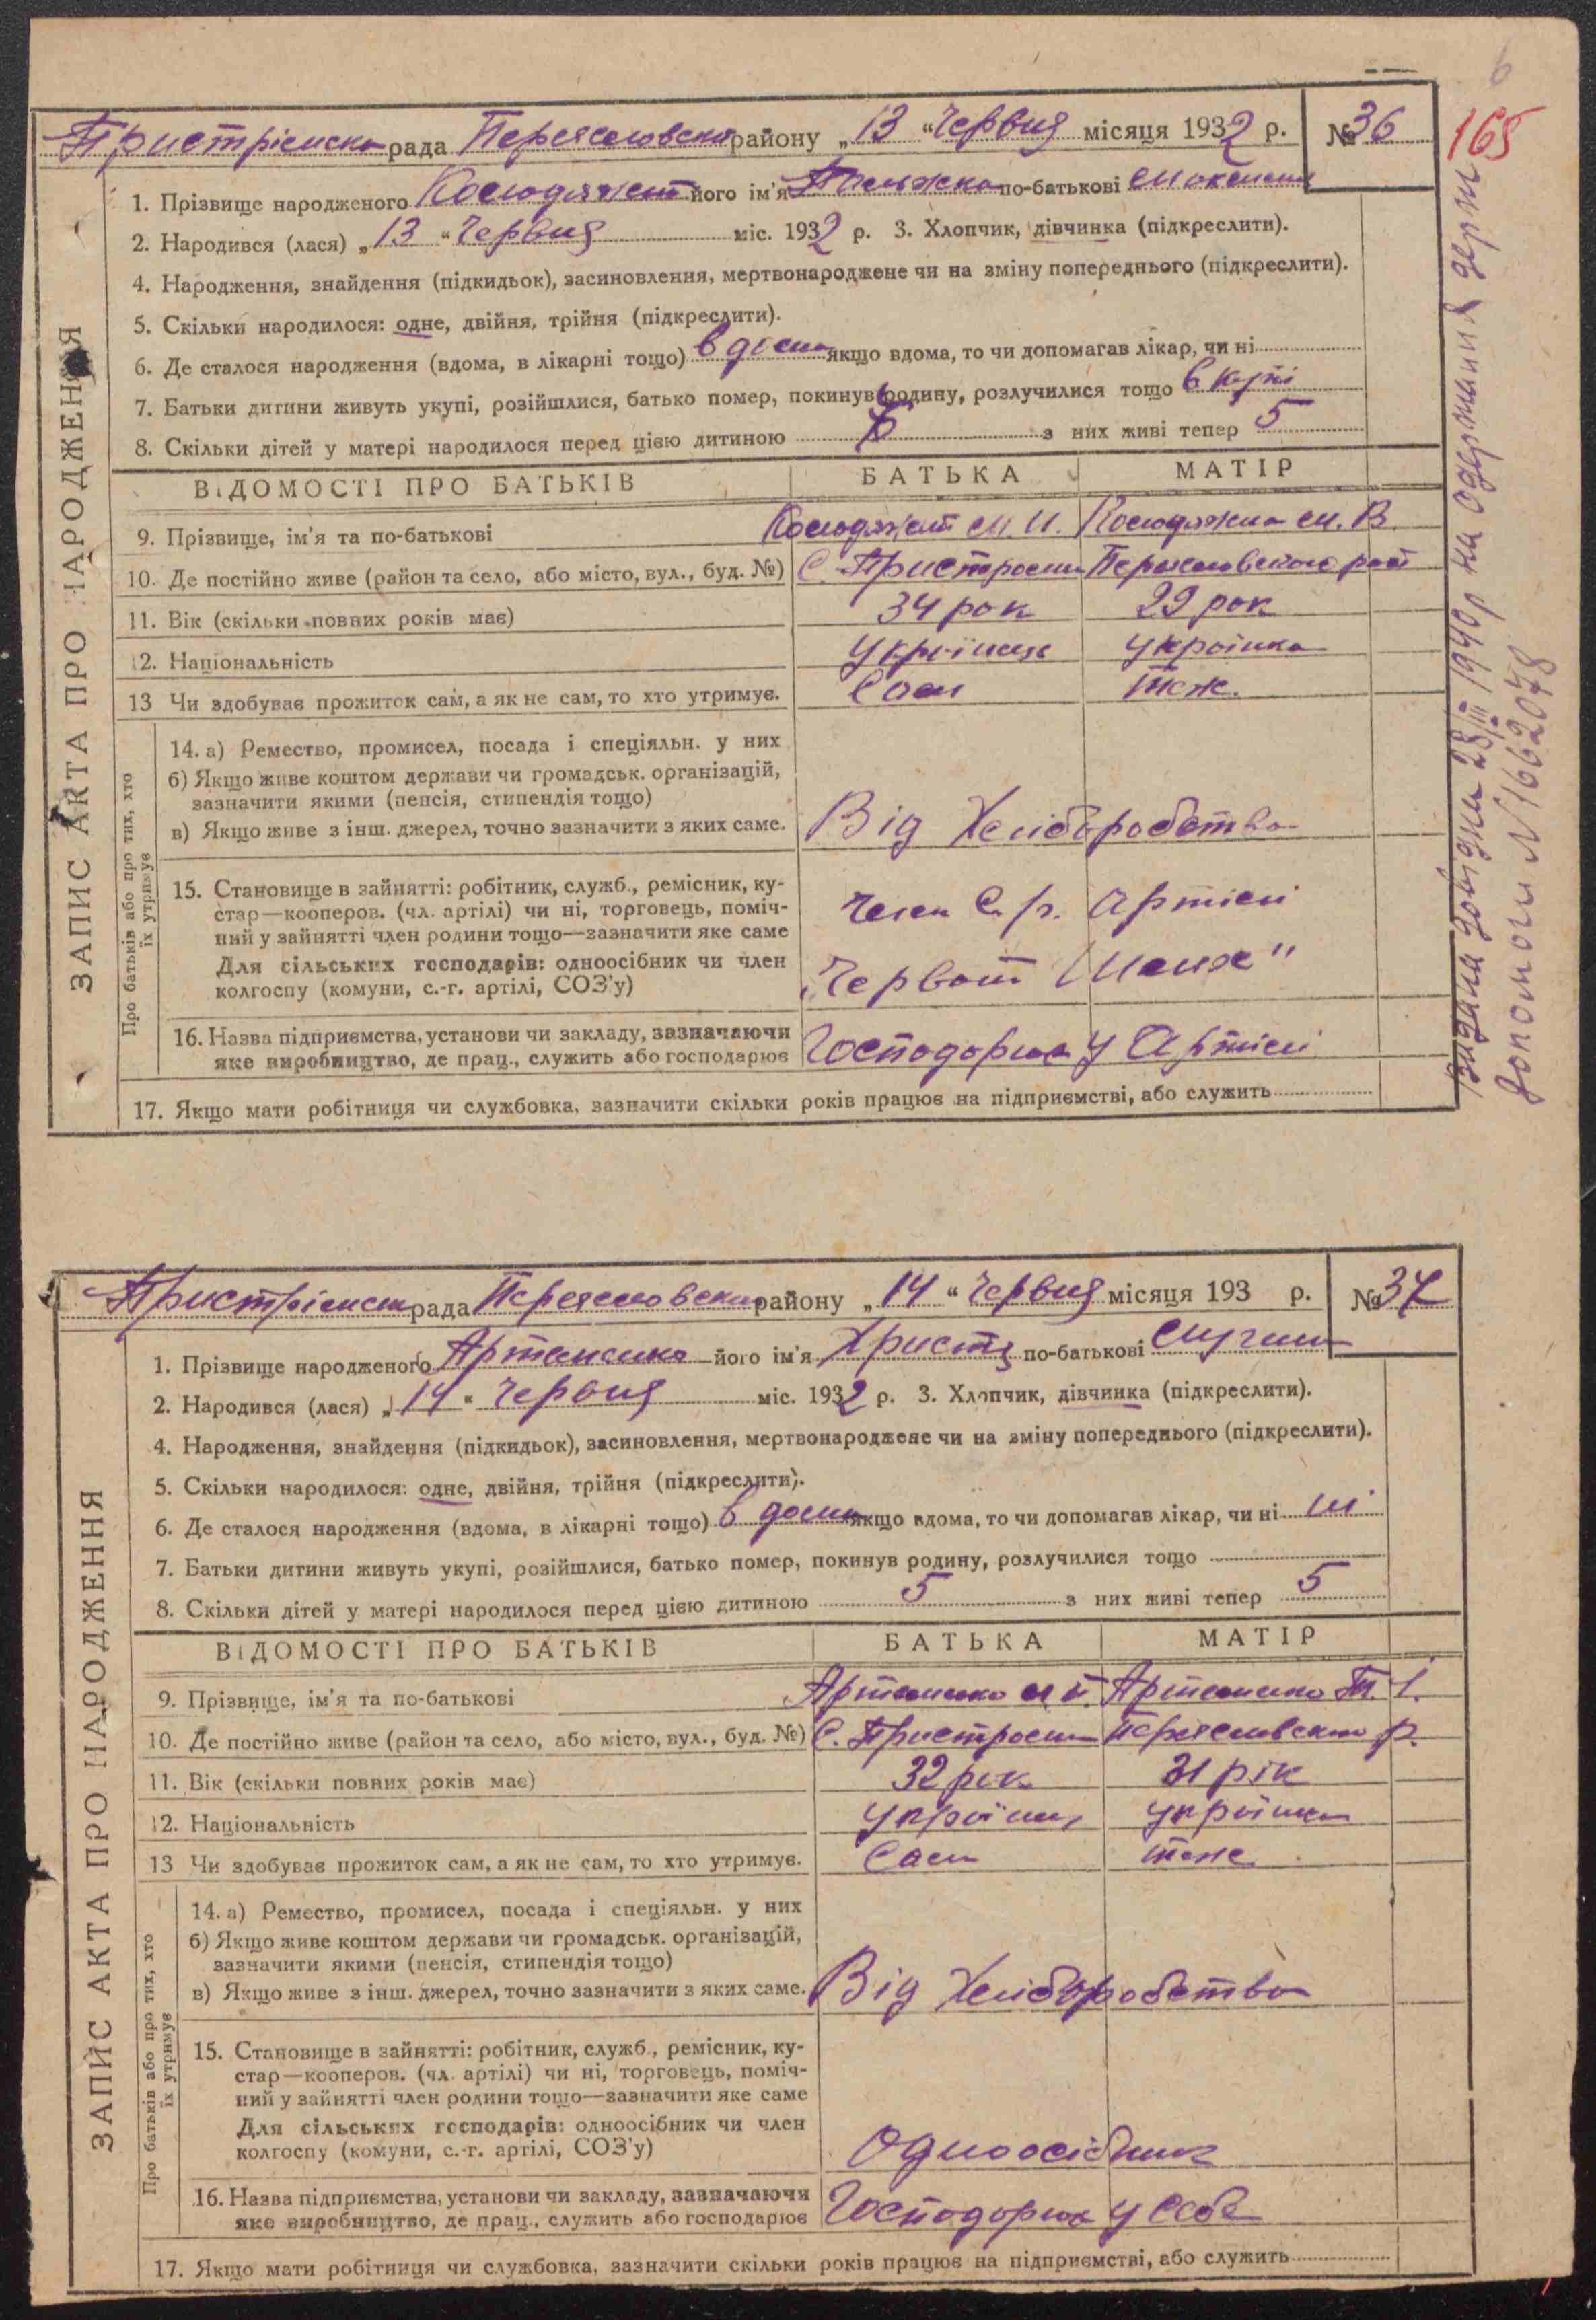 6
165
Пристрімска рада Переяславська району „13 “ Червня місяця 1932 р. № 36
ЗАПИС АКТА ПРО НАРОДЖЕННЯ
1. Прізвище народженого його ім'я по-батькові
2. Народився (лася) „13 “ Червня міс. 1932 р. 3. Хлопчик, дівчинка (підкреслити).
4. Народження, знайдення (підкидьок), засиновлення, мертвонароджене чи на зміну попереднього (підкреслити).
5. Скільки народилося: одне, двійня, трійня (підкреслити).
6. Де сталося народження (вдома, в лікарні тощо) в дома якщо вдома, то чи допомагав лікар, чи ні
7. Батьки дитини живуть укупі, розійшлися, батько помер, покинув родину, розлучилися тощо в купі
8. Скільки дітей у матері народилося перед цією дитиною з них живі тепер 5
ВІДОМОСТІ ПРО БАТЬКІВ БАТЬКА МАТІР
9. Прізвище, ім'я та по-батькові
10. Де постійно живе (район та село, або місто, вул., буд. №) С. Пристроми Переяславського рай
11. Вік (скільки повних років має) 34 рок 29 рок
12. Національність Українец Українка
13 Чи здобуває прожиток сам, а як не сам, то хто утримує. Сам теж.
Про батьків або про тих, хто їх утримує
14. а) Ремество, промисел, посада і спеціяльн. у них
б) Якщо живе коштом держави чи громадськ. організацій,
зазначити якими (пенсія, стипендія тощо)
в) Якщо живе з інш. джерел, точно зазначити з яких саме. Від Хліборобства
15. Становище в зайнятті: робітник, служб., ремісник, ку-
стар—кооперов. (чл. артілі) чи ні, торговець, поміч- Член С. р. Артілі
ний у зайнятті член родини тощо—зазначити яке саме
Для сільських господарів: одноосібник чи член
колгоспу (комуни, с.-г. артілі, СОЗ'у)
16. Назва підприємства, установи чи закладу, зазначаючи
яке виробництво, де прац., служить або господарює Господорює у Артілі
17. Якщо мати робітниця чи службовка, зазначити скільки років працює на підприємстві, або служить
Видана довідка 28/III 1940 р на одержання держ
допомоги N 1662078
Пристрімска рада Переяславська району „14 “ Червня місяця 193 р. № 37
ЗАПИС АКТА ПРО НАРОДЖЕННЯ
1. Прізвище народженого Артеменко його ім'я Христя по-батькові
2. Народився (лася) „14 “ Червня міс. 1932 р. 3. Хлопчик, дівчинка (підкреслити).
4. Народження, знайдення (підкидьок), засиновлення, мертвонароджене чи на зміну попереднього (підкреслити).
5. Скільки народилося: одне, двійня, трійня (підкреслити).
6. Де сталося народження (вдома, в лікарні тощо) в дома якщо вдома, то чи допомагав лікар, чи ні ні
7. Батьки дитини живуть укупі, розійшлися, батько помер, покинув родину, розлучилися тощо
8. Скільки дітей у матері народилося перед цією дитиною 5 з них живі тепер 5
ВІДОМОСТІ ПРО БАТЬКІВ БАТЬКА МАТІР
9. Прізвище, ім'я та по-батькові Артеменко М. П. Артеменко Т. І.
10. Де постійно живе (район та село, або місто, вул., буд. №) С. Пристроми Переяславського р.
11. Вік (скільки повних років має) 32 рок 31 рік
12. Національність Українец Українка
13 Чи здобуває прожиток сам, а як не сам, то хто утримує. Сам теж
Про батьків або про тих, хто їх утримує
14. а) Ремество, промисел, посада і спеціяльн. у них
б) Якщо живе коштом держави чи громадськ. організацій,
зазначити якими (пенсія, стипендія тощо)
в) Якщо живе з інш. джерел, точно зазначити з яких саме. Від Хліборобства
15. Становище в зайнятті: робітник, служб., ремісник, ку-
стар—кооперов. (чл. артілі) чи ні, торговець, поміч-
ний у зайнятті член родини тощо—зазначити яке саме
Для сільських господарів: одноосібник чи член
колгоспу (комуни, с.-г. артілі, СОЗ'у) Одноосібник
16. Назва підприємства, установи чи закладу, зазначаючи
яке виробництво, де прац., служить або господарює Господорює у себе
17. Якщо мати робітниця чи службовка, зазначити скільки років працює на підприємстві, або служить